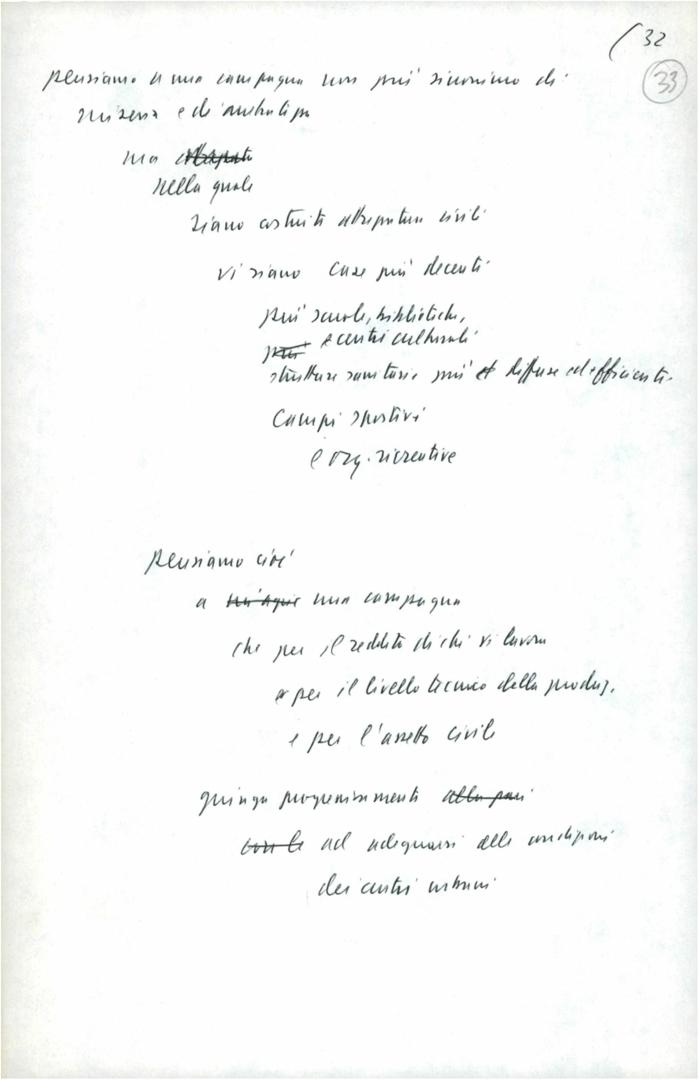 32
33
pensiamo a una campagna non più sinonimo di
miseria e di arretratezza
ma attrezzata
nella quale
siano costruite attrezzature civili
vi siano case più decenti
più scuole, biblioteche,
più e centri culturali
strutture sanitarie più diffuse ed efficienti
campi sportivi
e org. ricreative
pensiamo cioè
a una campagna
che per il reddito di chi vi lavora
e per il livello tecnico della produz.
e per l'assetto civile
giunga progressivamente alla pari
con le ad adeguarsi alle condizioni
dei centri urbani